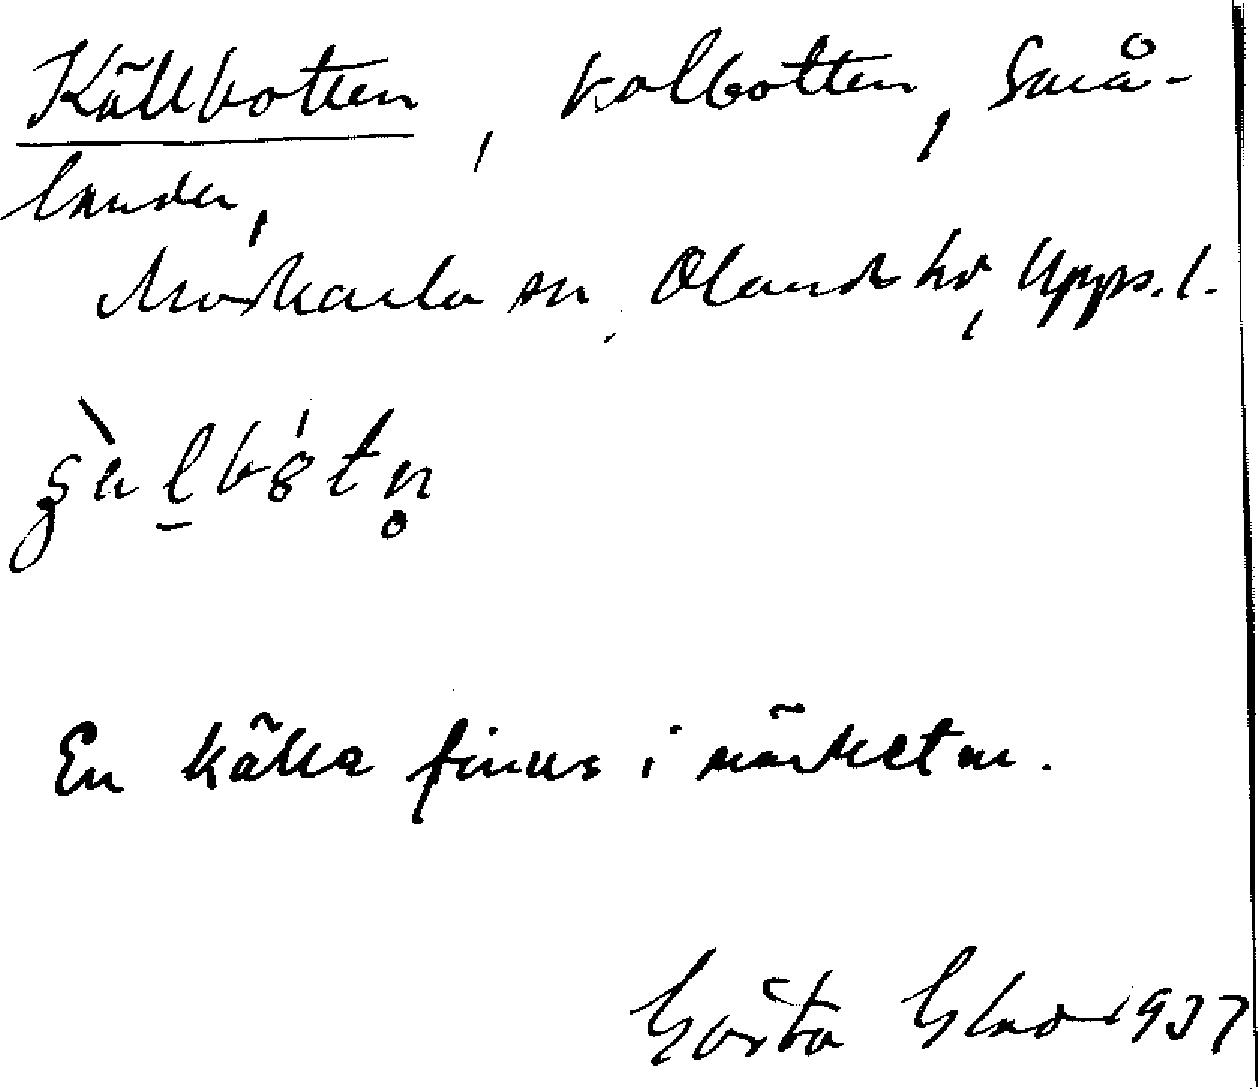 Källbotten, kolbotten, Små-
landa,
Morkarla sn, Olands hd, Upps. l.
En källa finns i närheten.
Gösta Glad 1937